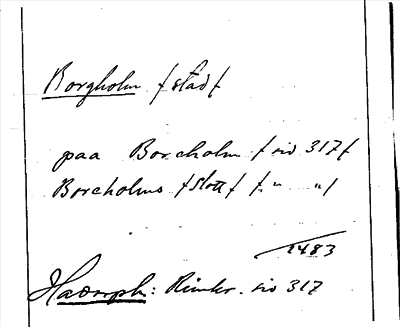 Borgholm /stad/
paa Borcholm / sid 317/
Borcholms /slott/ /" "/
1483
Hadorph: Rimkr. sid 317